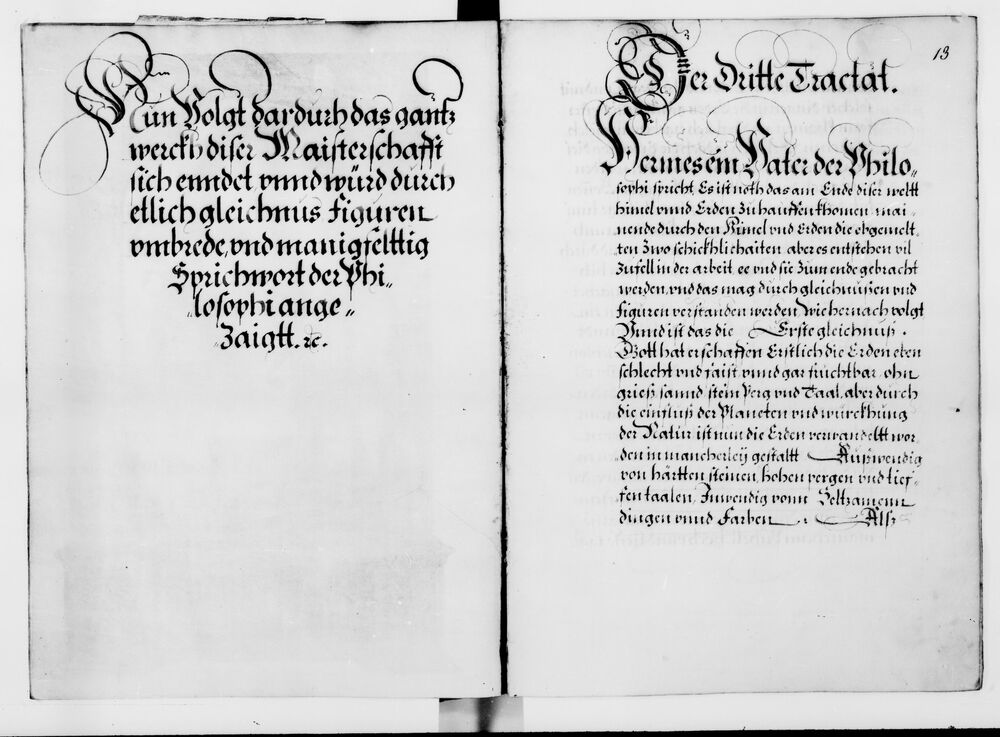 Nun Volgt dardurh das gantz
werckh diser Maisterschafft
sich enndet vnnd würd durch
etlich gleichnus figuren
vmbrede, vnd manigfelttig
Sprichwort der Phi„
„losophi ange„
„zaigtt. ꝛc.
13
Der Dritte Tractat.
Hermes ein Vater der Philo„
sophi spricht, Es ist noth das am Ende diser weltt
himel vnnd Erden zuhauffen khomen, mai„
nende durch den Himel vnd Erden die obgemelt„
ten zwo schickhlichaiten aber es entstehen vil
zufell in der arbeit, ee vnd sie zum ende gebracht
werden, vnd das mag durch gleichnußen vnd
figuren verstanden werden, wie hernach volgt
Vnnd ist das die Erste gleichnuß.
Gott hat erschaffen Erstlich die Erden eben
schlecht vnd faist vnnd gar fruchtbar, ohn
grieß sannd stein Perg vnd Taal, aber durch
die einfluß der Planeten vnd würckhung
der Natur ist nun die Erden verwandeltt wor
den in mancherleÿ gestaltt Außwendig
von härtten steinen, hohen pergen vnd tief„
fen taalen, Inwendig vonn Seltzamenn
dingen vnnd Farben. Alß